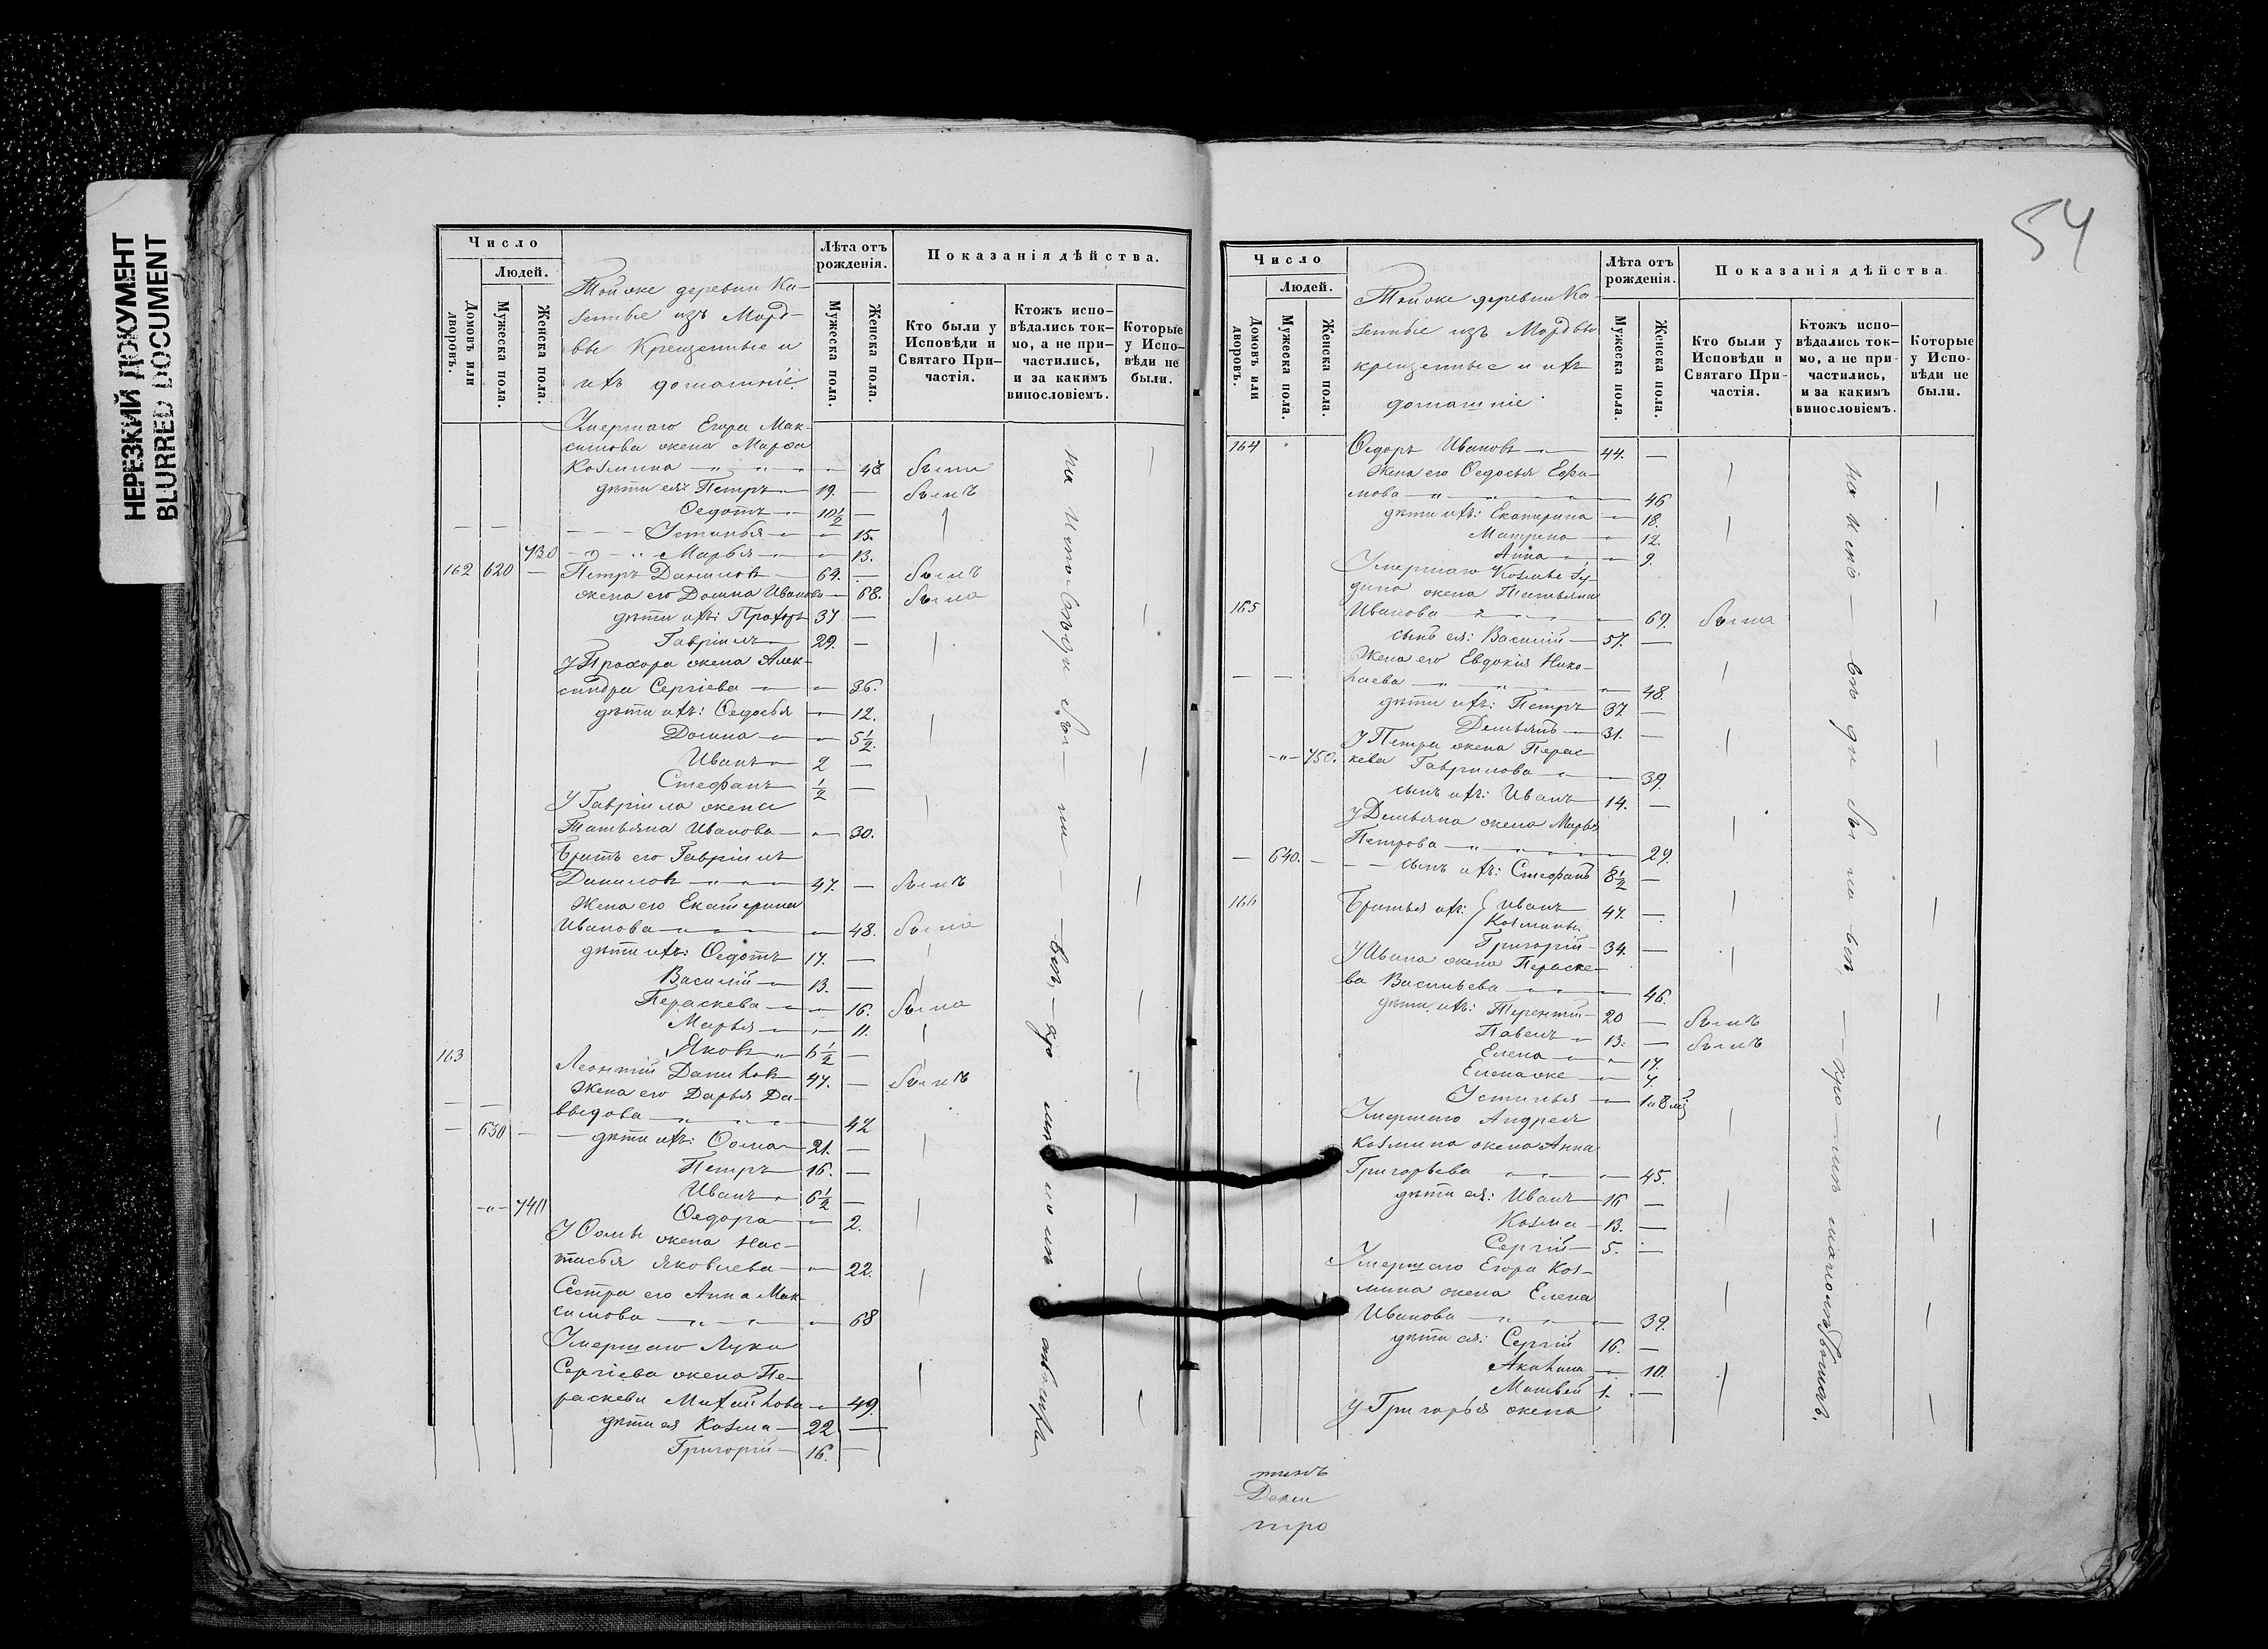 НЕРЕЗКИЙ ДОКУМЕНТ
BLURRED DOCUMENT
Число
Людей.
Домовъ или дворовъ.
Мужеска пола.
Женска пола.
Той же деревни Ка-
зенные изъ Морд-
вы Крещенные и
ихъ домашніе.
Лѣта отъ рожденія.
Мужеска пола.
Женска пола.
Показанія дѣйства.
Кто были у Исповѣди и Святаго При-частія.
Ктожъ испо-вѣдались ток-мо, а не при-частились, и за какимъ винословіемъ.
Которые у Испо-вѣди не были.
Умершаго Егора Мак-
симова жена Марфа
Козмина 48. была
дѣти ея: Петръ 19. — былъ
Ѳедотъ 10½ —
Устинья 15.
730 Марья 13.
162 620 — Петръ Даниловъ 64. — былъ
жена его Домна Иванова 68. была
дѣти ихъ: Прохоръ 37 —
Гавріилъ 29. —
У Прохора жена Алек-
сандра Сергіева 36.
дѣти ихъ: Ѳедосья 12.
Домна 5½
Иванъ 2 —
Стефанъ ½ —
У Гавріила жена
Татьяна Иванова 30.
Братъ его Гавріилъ
Даниловъ 47. — былъ
Жена его Екатерина
Иванова 48. была
дѣти ихъ: Ѳедотъ 17. —
Василій 13. —
Параскева 16. была
Марья 11.
Яковъ 6½ —
163
Леонтій Даниловъ 47. — былъ
Жена его Дарья Да-
выдова 42
630 — дѣти ихъ: Ѳома 21. —
Петръ 16. —
Иванъ 6½ —
740 Ѳедора 2.
У Ѳомы жена Нас-
тасья Яковлева 22.
Сестра его Анна Мак-
симова 68
Умершаго Луки
Сергіева жена Пе-
раскева Михайлова 49.
дѣти ея Козма 22 —
Григорій 16. —
54
Число
Людей.
Домовъ или дворовъ.
Мужеска пола.
Женска пола.
Той же деревни Ка-
зенные изъ Мордвы
крещенные и ихъ
домашніе
Лѣта отъ рожденія.
Мужеска пола.
Женска пола.
Показанія дѣйства
Кто были у Исповѣди и Святаго При-частія.
Ктожъ испо-вѣдались ток-мо, а не при-частились, и за какимъ винословіемъ.
Которые у Испо-вѣди не были.
164 Ѳедоръ Ивановъ 44. —
Жена его Ѳедосья Ефи-
мова 46
дѣти ихъ: Екатерина 18.
Матрена 12.
Анна 9.
Умершаго Козмы
жена Татьяна
165 Иванова 69. была
сынъ ея: Василій 57. —
Жена его Евдокія Нико-
лаева 48.
дѣти ихъ: Петръ 37. —
Демьянъ 31. —
У Петра жена Перас-
750. кева Гаврилова 39.
сынъ ихъ: Иванъ 14. —
У Демьяна жена Марья
Петрова 29.
640. — сынъ ихъ: Стефанъ 8½ —
166 Братья ихъ: Иванъ 47. —
Козмины.
Григорій 34. —
У Ивана жена Параске-
ва Васильева 46.
дѣти ихъ: Терентій 20 — былъ
Павелъ 13. — былъ
Елена 17.
Елена же 7.
Устинья
Умершаго Андрея
Козмина жена Анна
Григорьева 45.
дѣти ея: Иванъ 16 —
Козма 13. —
Сергій 5. —
Умершаго Егора Коз-
мина жена Елена
Иванова 39.
дѣти ея: Сергій 16. —
Акилина 10.
Матвей 1. —
У Григорья жена